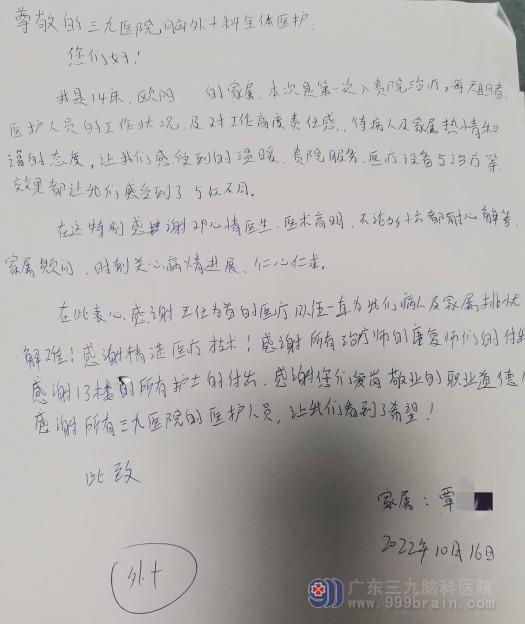 尊敬的三九医院脑外十科全体医护:
您们好!
我是14床,欧阳 的家属,本次是第一次入贵院治疗,每天
医护人员的工作状况,及对工作高度责任感,待病人及家属热情和
谐的态度,让我们感受到的温暖,贵院服务,医疗设备与治疗等
效果都让我们感受到了与众不同。
在这特别感谢邓心情医生,医术高明,不论 什么都耐心解答
家属疑问,时刻关心病情进展,仁心仁术。
在此衷心感谢 为首的医疗队伍一直为我们病人及家属排忧
解难!感谢精湛医疗技术!感谢所有治疗师的康复师们的付出
感谢13楼的所有护士的付出,感谢您们爱岗敬业的职业道德!
感谢所有三九医院的医护人员,让我们看到了希望!
此致
家属:覃
2022年10月16日
外十
广东三九脑科医院
www.999brain.com